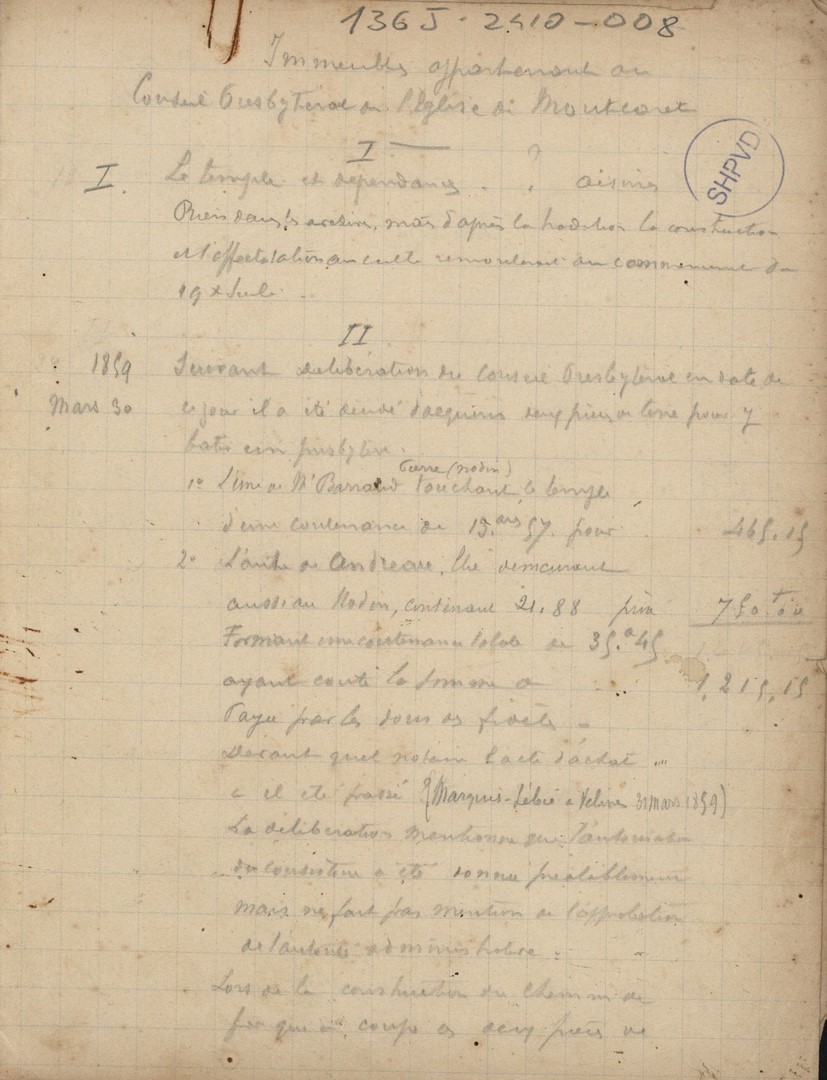 136 J - 2410 - 008
Immeubles appartenant au
Conseil Presbytéral de l'Eglise de Montcaret
SHPVD
I
I. Le temple et dépendances . ?
Rien dans les archives, mais d'après la tradition la construction
et l'affectation au culte remonterait au commencement du
19e Siècle.
II
1859 Suivant délibération du Conseil Presbytéral en date de
Mars 30 ce jour il a été décidé d'acquérir deux pièces de terre pour y
batir un presbytère.
Pierre (nodin)
1° L'une de Mr Barraud touchant le temple
d'une contenance de ares 57. pour 465.15
2° L'autre de demeurant
aussi au Nodin, contenant 21.88 prix 750.00
Formant une contenance totale de 35.a45
ayant couté la somme de 1,215,15
Payée par les dons des fidèles -
Devant quel notain l'acte d'achat
a il été passé ? (Marquis- à Velines 31 mars 1859)
La délibération mentionne que l'autorisation
du consistoire a été donnée préalablement
mais ne fait pas mention de l'approbation
de l'autorité administrative.
Lors de la construction du Chemin de
fer qui a coupé ces deux pièces de